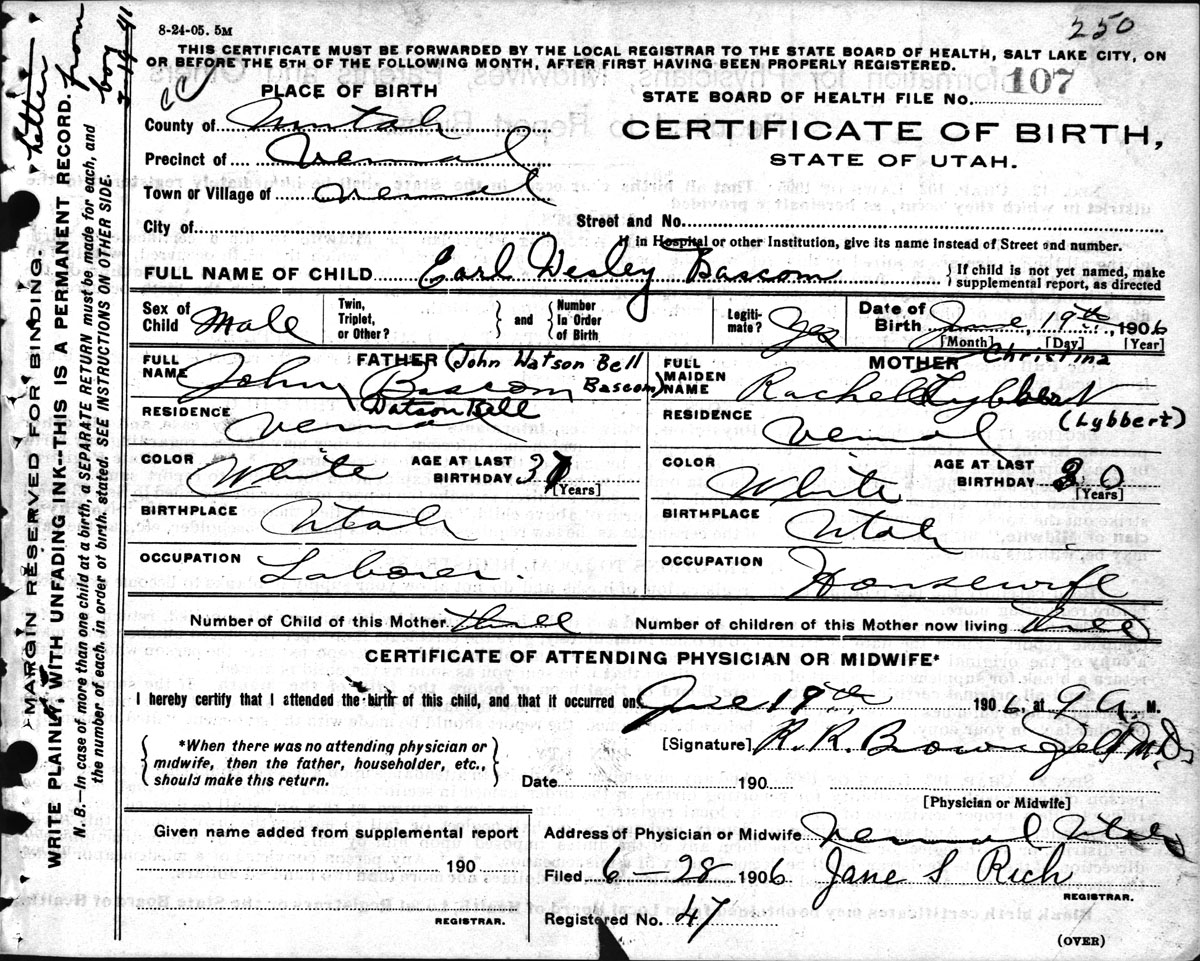 8-24-05. 5M
250
THIS CERTIFICATE MUST BE FORWARDED BY THE LOCAL REGISTRAR TO THE STATE BOARD OF HEALTH, SALT LAKE CITY, ON
OR BEFORE THE 5TH OF THE FOLLOWING MONTH, AFTER FIRST HAVING BEEN PROPERLY REGISTERED.
PLACE OF BIRTH
STATE BOARD OF HEALTH FILE No. 107
County of Uintah
CERTIFICATE OF BIRTH,
Precinct of Vernal
STATE OF UTAH.
Town or Village of Vernal
City of Street and No.
If in Hospital or other Institution, give its name instead of Street and number.
FULL NAME OF CHILD Earl Wesley Bascom } If child is not yet named, make supplemental report, as directed
Sex of Child Male Twin, Triplet, or Other? } and { Number In Order of Birth Legitimate? Yes Date of Birth June 19th, 1906
[Month] [Day] [Year]
FATHER (John Watson Bell Bascom)
FULL NAME John Bascom
Watson Bell
MOTHER Christina
FULL MAIDEN NAME Rachel Lybbert
(Lybbert)
RESIDENCE Vernal
RESIDENCE Vernal
COLOR White AGE AT LAST BIRTHDAY 37 [Years]
COLOR White AGE AT LAST BIRTHDAY 30 [Years]
BIRTHPLACE Utah
BIRTHPLACE Utah
OCCUPATION Laborer.
OCCUPATION Housewife
Number of Child of this Mother three Number of children of this Mother now living three
CERTIFICATE OF ATTENDING PHYSICIAN OR MIDWIFE*
I hereby certify that I attended the birth of this child, and that it occurred on June 19th 1906, at 9 A. M.
*When there was no attending physician or
midwife, then the father, householder, etc.,
should make this return.
[Signature], R. R.
M.D.
Date 190
[Physician or Midwife]
Given name added from supplemental report
190
REGISTRAR.
Address of Physician or Midwife Vernal Utah
Filed 6 - 28 1906 Jane S Rich
REGISTRAR.
Registered No. 47
(OVER)
MARGIN RESERVED FOR BINDING.
WRITE PLAINLY, WITH UNFADING INK---THIS IS A PERMANENT RECORD.
N. B.—In case of more than one child at a birth, a SEPARATE RETURN must be made for each, and
the number of each, in order of birth, stated. SEE INSTRUCTIONS ON OTHER SIDE.
letter from
boy